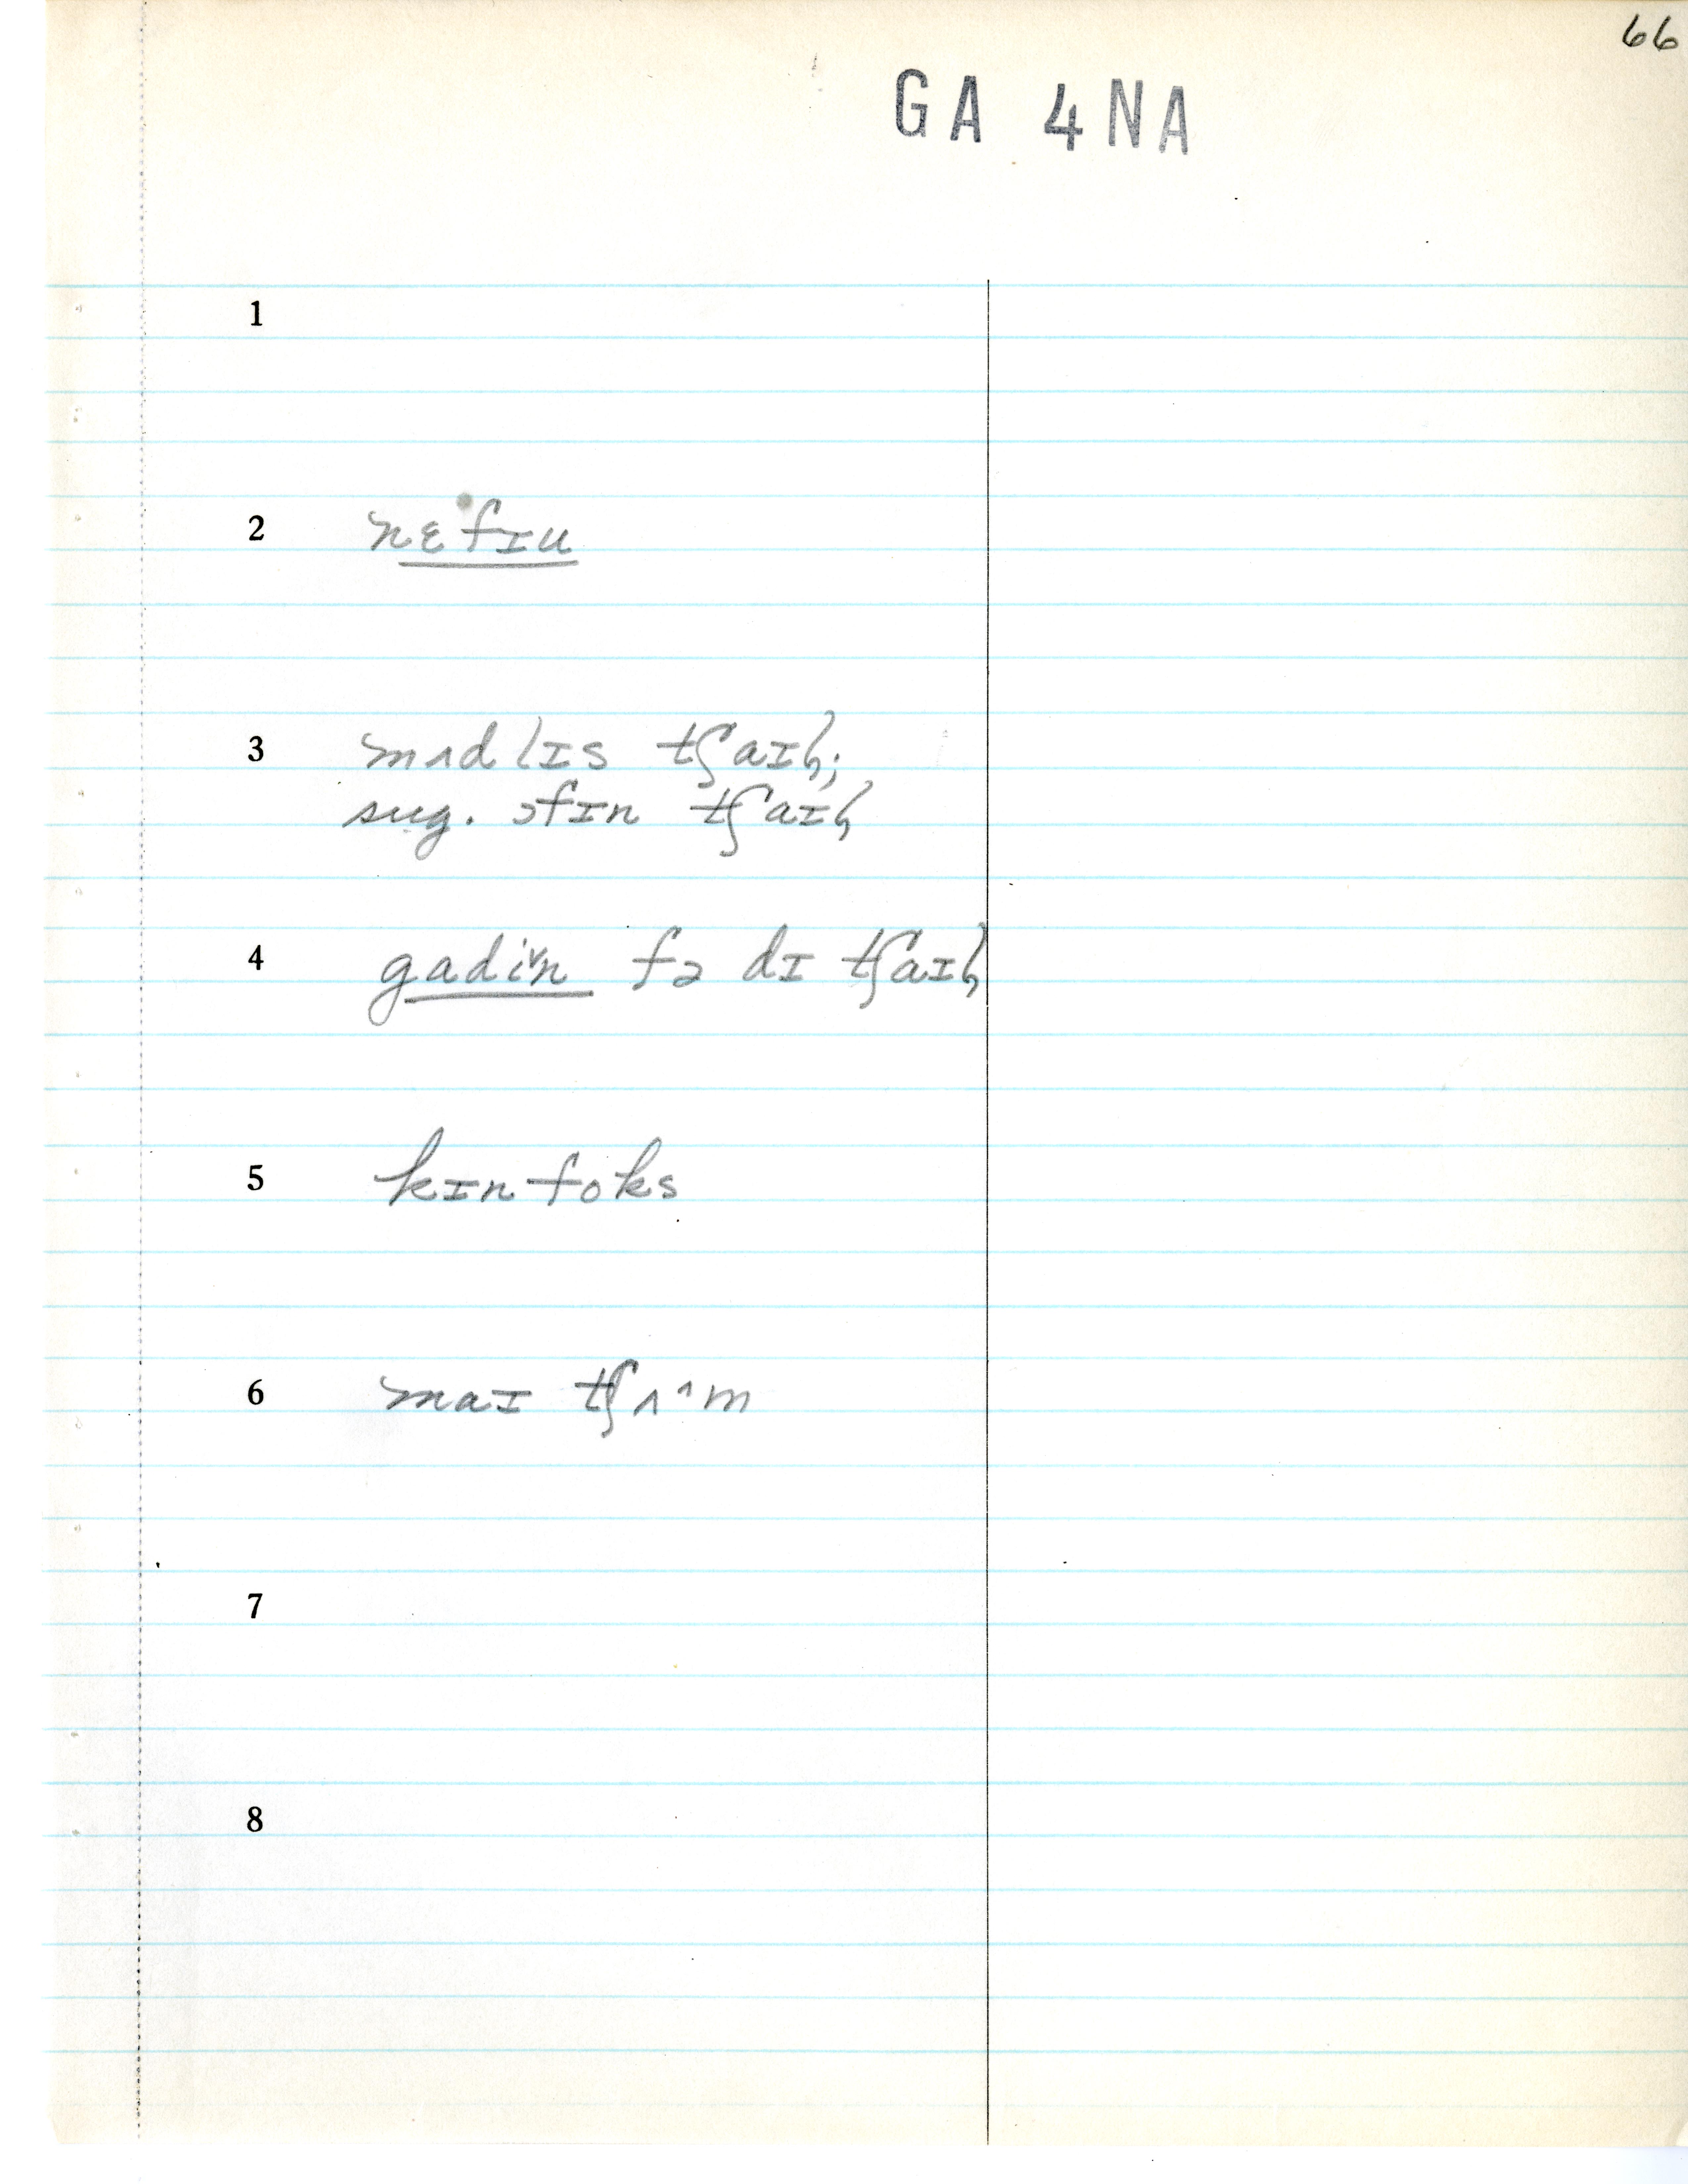 66
GA 4NA
1
2 nɛfɪu
3 mʌdlɪs tʃaɪɫ;
sug. ɔfɪn tʃaɪɫ
4 gadin fə dɪ tʃaɪɫ
5 kɪnfoks
6 maɪ tʃʌ^m
7
8